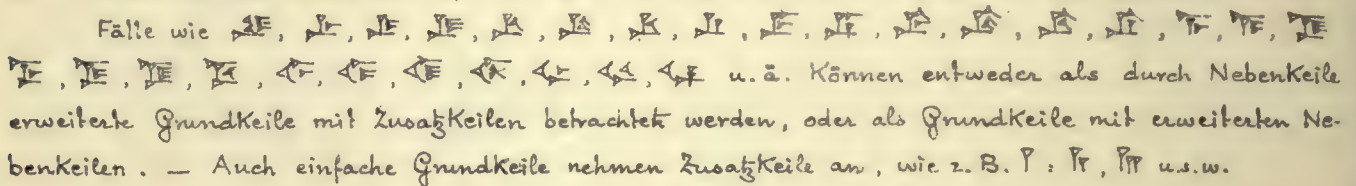 Fälle wie , , , , , , , , , , , , , , , , ,
, , , , , , , , , , u. ä. Können entweder als durch Nebenkeile
erweiterte Grundkeile mit Zusatzkeilen betrachtet werden, oder als Grundkeile mit erweiterten Ne-
benkeilen. — Auch einfache Grundkeile nehmen Zusatzkeile an, wie z. B. : , u.s.w.